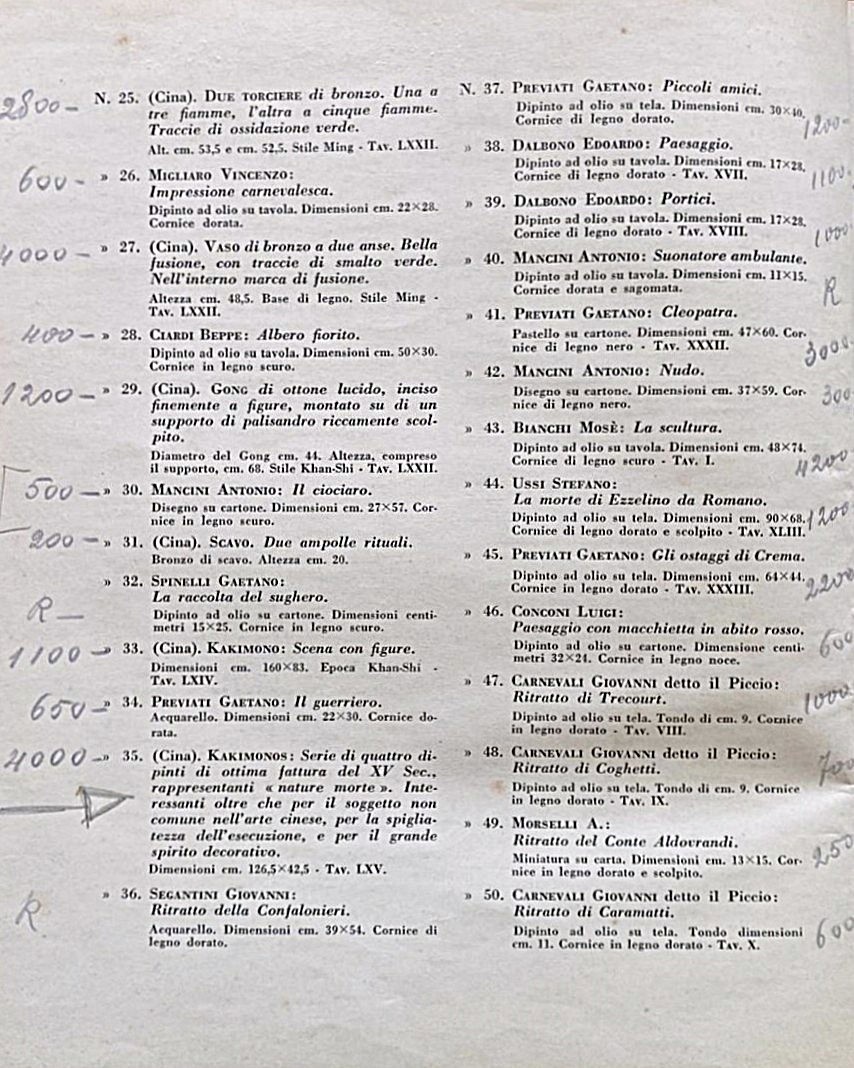 2800 – N. 25. (Cina). DUE TORCIERE di bronzo. Una a
tre fiamme, l'altra a cinque fiamme.
Traccie di ossidazione verde.
Alt. cm. 53,5 e cm. 52,5. Stile Ming - TAV. LXXII.
600 – » 26. MIGLIARO VINCENZO:
Impressione carnevalesca.
Dipinto ad olio su tavola. Dimensioni cm. 22×28.
Cornice dorata.
4000 – » 27. (Cina). VASO di bronzo a due anse. Bella
fusione, con traccie di smalto verde.
Nell'interno marca di fusione.
Altezza cm. 48,5. Base di legno. Stile Ming -
TAV. LXXII.
400 – » 28. CIARDI BEPPE: Albero fiorito.
Dipinto ad olio su tavola. Dimensioni cm. 50×30.
Cornice in legno scuro.
1200 – » 29. (Cina). GONG di ottone lucido, inciso
finemente a figure, montato su di un
supporto di palisandro riccamente scol-
pito.
Diametro del Gong cm. 44. Altezza, compreso
il supporto, cm. 68. Stile Khan-Shi - TAV. LXXII.
500 – » 30. MANCINI ANTONIO: Il ciociaro.
Disegno su cartone. Dimensioni cm. 27×57. Cor-
nice in legno scuro.
200 – » 31. (Cina). SCAVO. Due ampolle rituali.
Bronzo di scavo. Altezza cm. 20.
» 32. SPINELLI GAETANO:
La raccolta del sughero.
R – Dipinto ad olio su cartone. Dimensioni centi-
metri 15×25. Cornice in legno scuro.
1100 – » 33. (Cina). KAKIMONO: Scena con figure.
Dimensioni cm. 160×83. Epoca Khan-Shi -
TAV. LXIV.
650 – » 34. PREVIATI GAETANO: Il guerriero.
Acquarello. Dimensioni cm. 22×30. Cornice do-
rata.
4000 – » 35. (Cina). KAKIMONOS: Serie di quattro di-
pinti di ottima fattura del XV Sec.,
rappresentanti « nature morte ». Inte-
ressanti oltre che per il soggetto non
comune nell'arte cinese, per la spiglia-
tezza dell'esecuzione, e per il grande
spirito decorativo.
Dimensioni cm. 126,5×42,5 - TAV. LXV.
» 36. SEGANTINI GIOVANNI:
R Ritratto della Confalonieri.
Acquarello. Dimensioni cm. 39×54. Cornice di
legno dorato.
N. 37. PREVIATI GAETANO: Piccoli amici.
Dipinto ad olio su tela. Dimensioni cm. 30×40.
Cornice di legno dorato. 1200-
» 38. DALBONO EDOARDO: Paesaggio.
Dipinto ad olio su tavola. Dimensioni cm. 17×28.
Cornice di legno dorato - TAV. XVII. 1100-
» 39. DALBONO EDOARDO: Portici.
Dipinto ad olio su tavola. Dimensioni cm. 17×28.
Cornice di legno dorato - TAV. XVIII. 1000
» 40. MANCINI ANTONIO: Suonatore ambulante.
Dipinto ad olio su tavola. Dimensioni cm. 11×15.
Cornice dorata e sagomata. R
» 41. PREVIATI GAETANO: Cleopatra.
Pastello su cartone. Dimensioni cm. 47×60. Cor-
nice di legno nero - TAV. XXXII. 3000
» 42. MANCINI ANTONIO: Nudo.
Disegno su cartone. Dimensioni cm. 37×59. Cor-
nice di legno nero. 300
» 43. BIANCHI MOSÈ: La scultura.
Dipinto ad olio su tavola. Dimensioni cm. 48×74.
Cornice di legno scuro - TAV. I. 4200
» 44. USSI STEFANO:
La morte di Ezzelino da Romano.
Dipinto ad olio su tela. Dimensioni cm. 90×68.
Cornice di legno dorato e scolpito - TAV. XLIII. 1200
» 45. PREVIATI GAETANO: Gli ostaggi di Crema.
Dipinto ad olio su tela. Dimensioni cm. 64×44.
Cornice in legno dorato - TAV. XXXIII. 2200
» 46. CONCONI LUIGI:
Paesaggio con macchietta in abito rosso.
Dipinto ad olio su cartone. Dimensione centi-
metri 32×24. Cornice in legno noce. 600
» 47. CARNEVALI GIOVANNI detto il Piccio:
Ritratto di Trecourt. 1000
Dipinto ad olio su tela. Tondo di cm. 9. Cornice
in legno dorato - TAV. VIII.
» 48. CARNEVALI GIOVANNI detto il Piccio:
Ritratto di Coghetti. 700
Dipinto ad olio su tela. Tondo di cm. 9. Cornice
in legno dorato - TAV. IX.
» 49. MORSELLI A.:
Ritratto del Conte Aldovrandi. 250
Miniatura su carta. Dimensioni cm. 13×15. Cor-
nice in legno dorato e scolpito.
» 50. CARNEVALI GIOVANNI detto il Piccio:
Ritratto di Caramatti.
Dipinto ad olio su tela. Tondo dimensioni 600
cm. 11. Cornice in legno dorato - TAV. X.